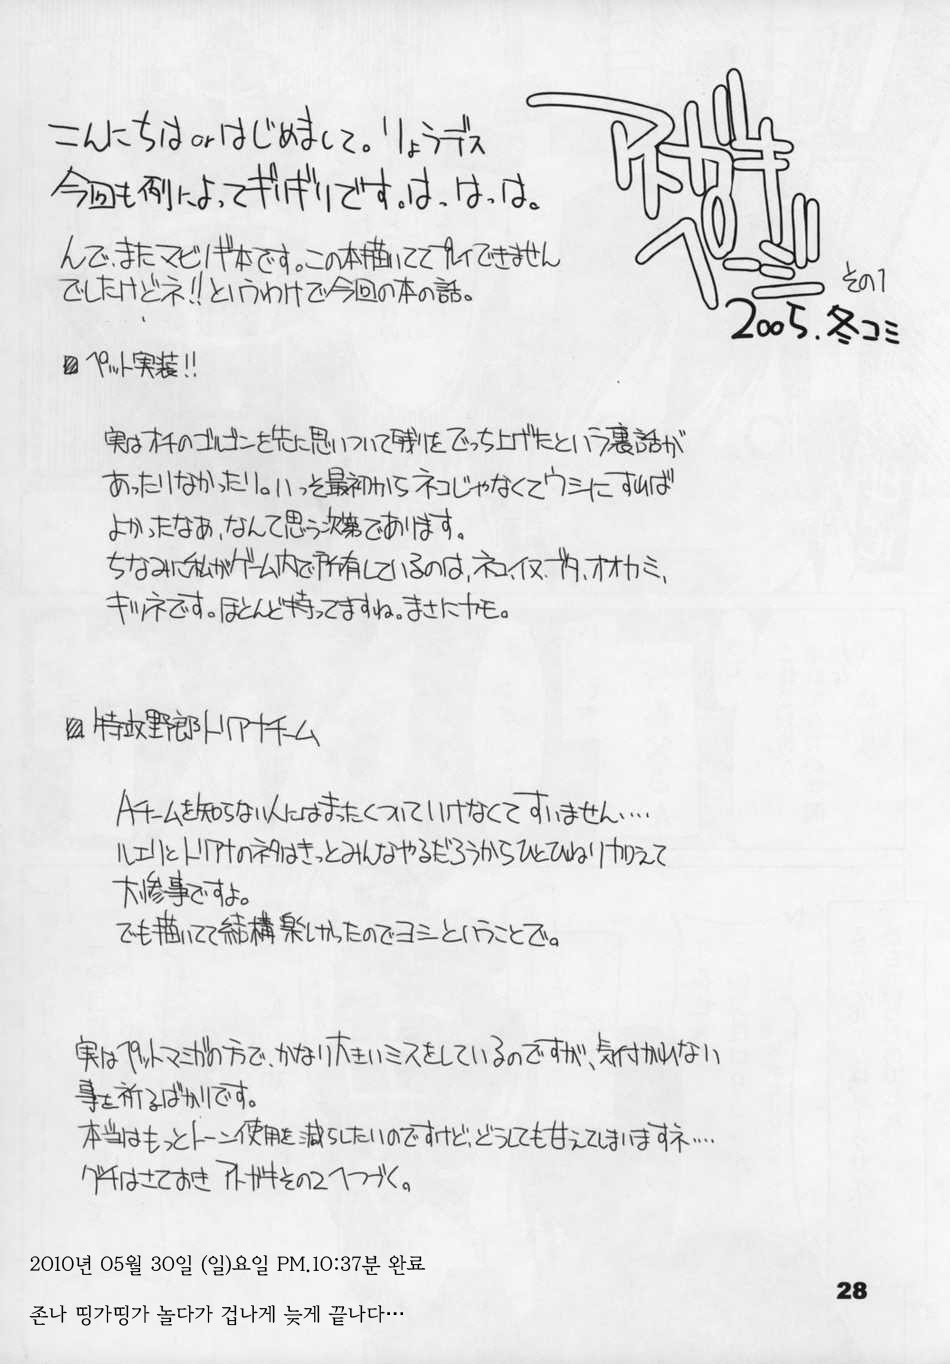 アトガキ
ぺーじ
その1
2005.冬コミ
こんにちはorはじめまして。りょうデス
今回も例によってギリギリです。はっはっは。
んで、またマビノギ本です。この本描いててプレイできません
でしたけどネ!!というわけで今回の本の話。
ペット実装!!
実はオチのゴルゴンを先に思いついて残りをでっち上げたという裏話が
あったりなかったり。いっそ最初からネコじゃなくてウシにすれば
よかったなあ、なんて思う次第であります。
ちなみに私がゲーム内で所有しているのは、ネコ、イヌ、ブタ、オオカミ、
キツネです。ほとんど持ってますね。まさにカモ。
特攻野郎トリアナチーム
Aチームを知らない人にはまったくついていけなくてすいません‥‥
ルエリとトリアナのネタはきっとみんなやるだろうからひとひねり加えて
大惨事ですよ。
でも描いてて結構楽しかったのでヨシということで。
実はペットマンガの方で、かなり大きいミスをしているのですが、気付かれない
事を祈るばかりです。
本当はもっとトーン使用を減らしたいのですけど、どうしても甘えてしまいますネ‥‥
グチはさておきアトガキその2へつづく。
2010년 05월 30일 (일)요일 PM.10:37분 완료
존나 띵가띵가 놀다가 겁나게 늦게 끝나다…
28